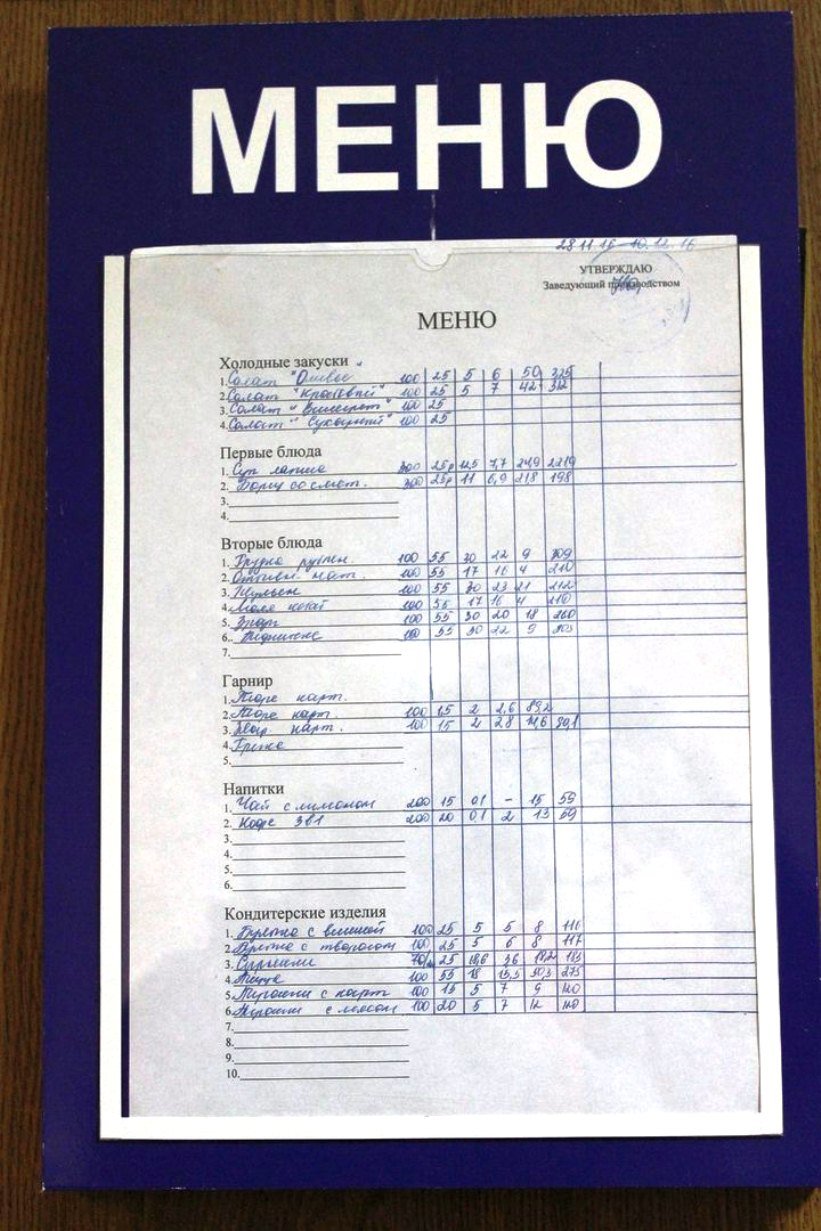 МЕНЮ
28.11.16 – 10.12.16
УТВЕРЖДАЮ
Заведующий производством
МЕНЮ
Холодные закуски
1. Салат "Оливье" 100 25 5 6 50 325
2. Салат "Красивый" 100 25 5 7 42 312
3. Салат "Винегрет" 100 25
4. Салат 100 25
Первые блюда
1. Суп лапша 300 25р 7,7 24,9 221,9
2. Борщ со смет. 300 25р 11 6,9 21,8 198
3.
4.
Вторые блюда
1. 100 55 30 22 9 309
2. Отбивн. 100 55 17 16 4 210
3. Жульен 100 55 30 23 21 212
4. 100 55 17 16 4 210
5. 100 55 30 20 18 260
6. 100 55 30 22 9
7.
Гарнир
1. Пюре карт.
2. Пюре карт. 100 15 2 2,6 89,2
3. карт. 100 15 2 2,8 14,6 99,1
4. Гречка
5.
Напитки
1. Чай с лимоном 200 15 01 – 15 59
2. Кофе 3в1 200 20 01 2 13 69
3.
4.
5.
6.
Кондитерские изделия
1. с вишней 100 25 5 5 8 111
2. с творогом 100 25 5 6 8 117
3. 25
4. Пицца 100 55 18 15,5 30,3 275
5. Пирожки с карт 100 15 5 7 9 120
6. Пирожки с мясом 100 20 5 7 12 120
7.
8.
9.
10.